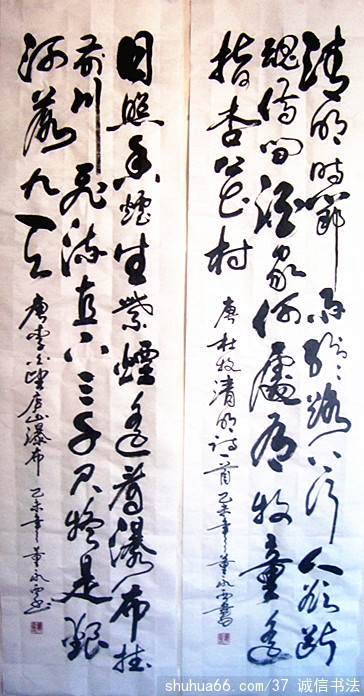 清明時節雨紛紛路上行人欲斷
魂借问酒家何處有牧童遥
指杏花村
唐杜牧清明詩一首 己未年
日照香炉生紫煙遥看瀑布挂
前川飛流直下三千尺疑是銀
河落九天
唐李白望庐山瀑布 己未年
shuhua66.com/37 诚信书法